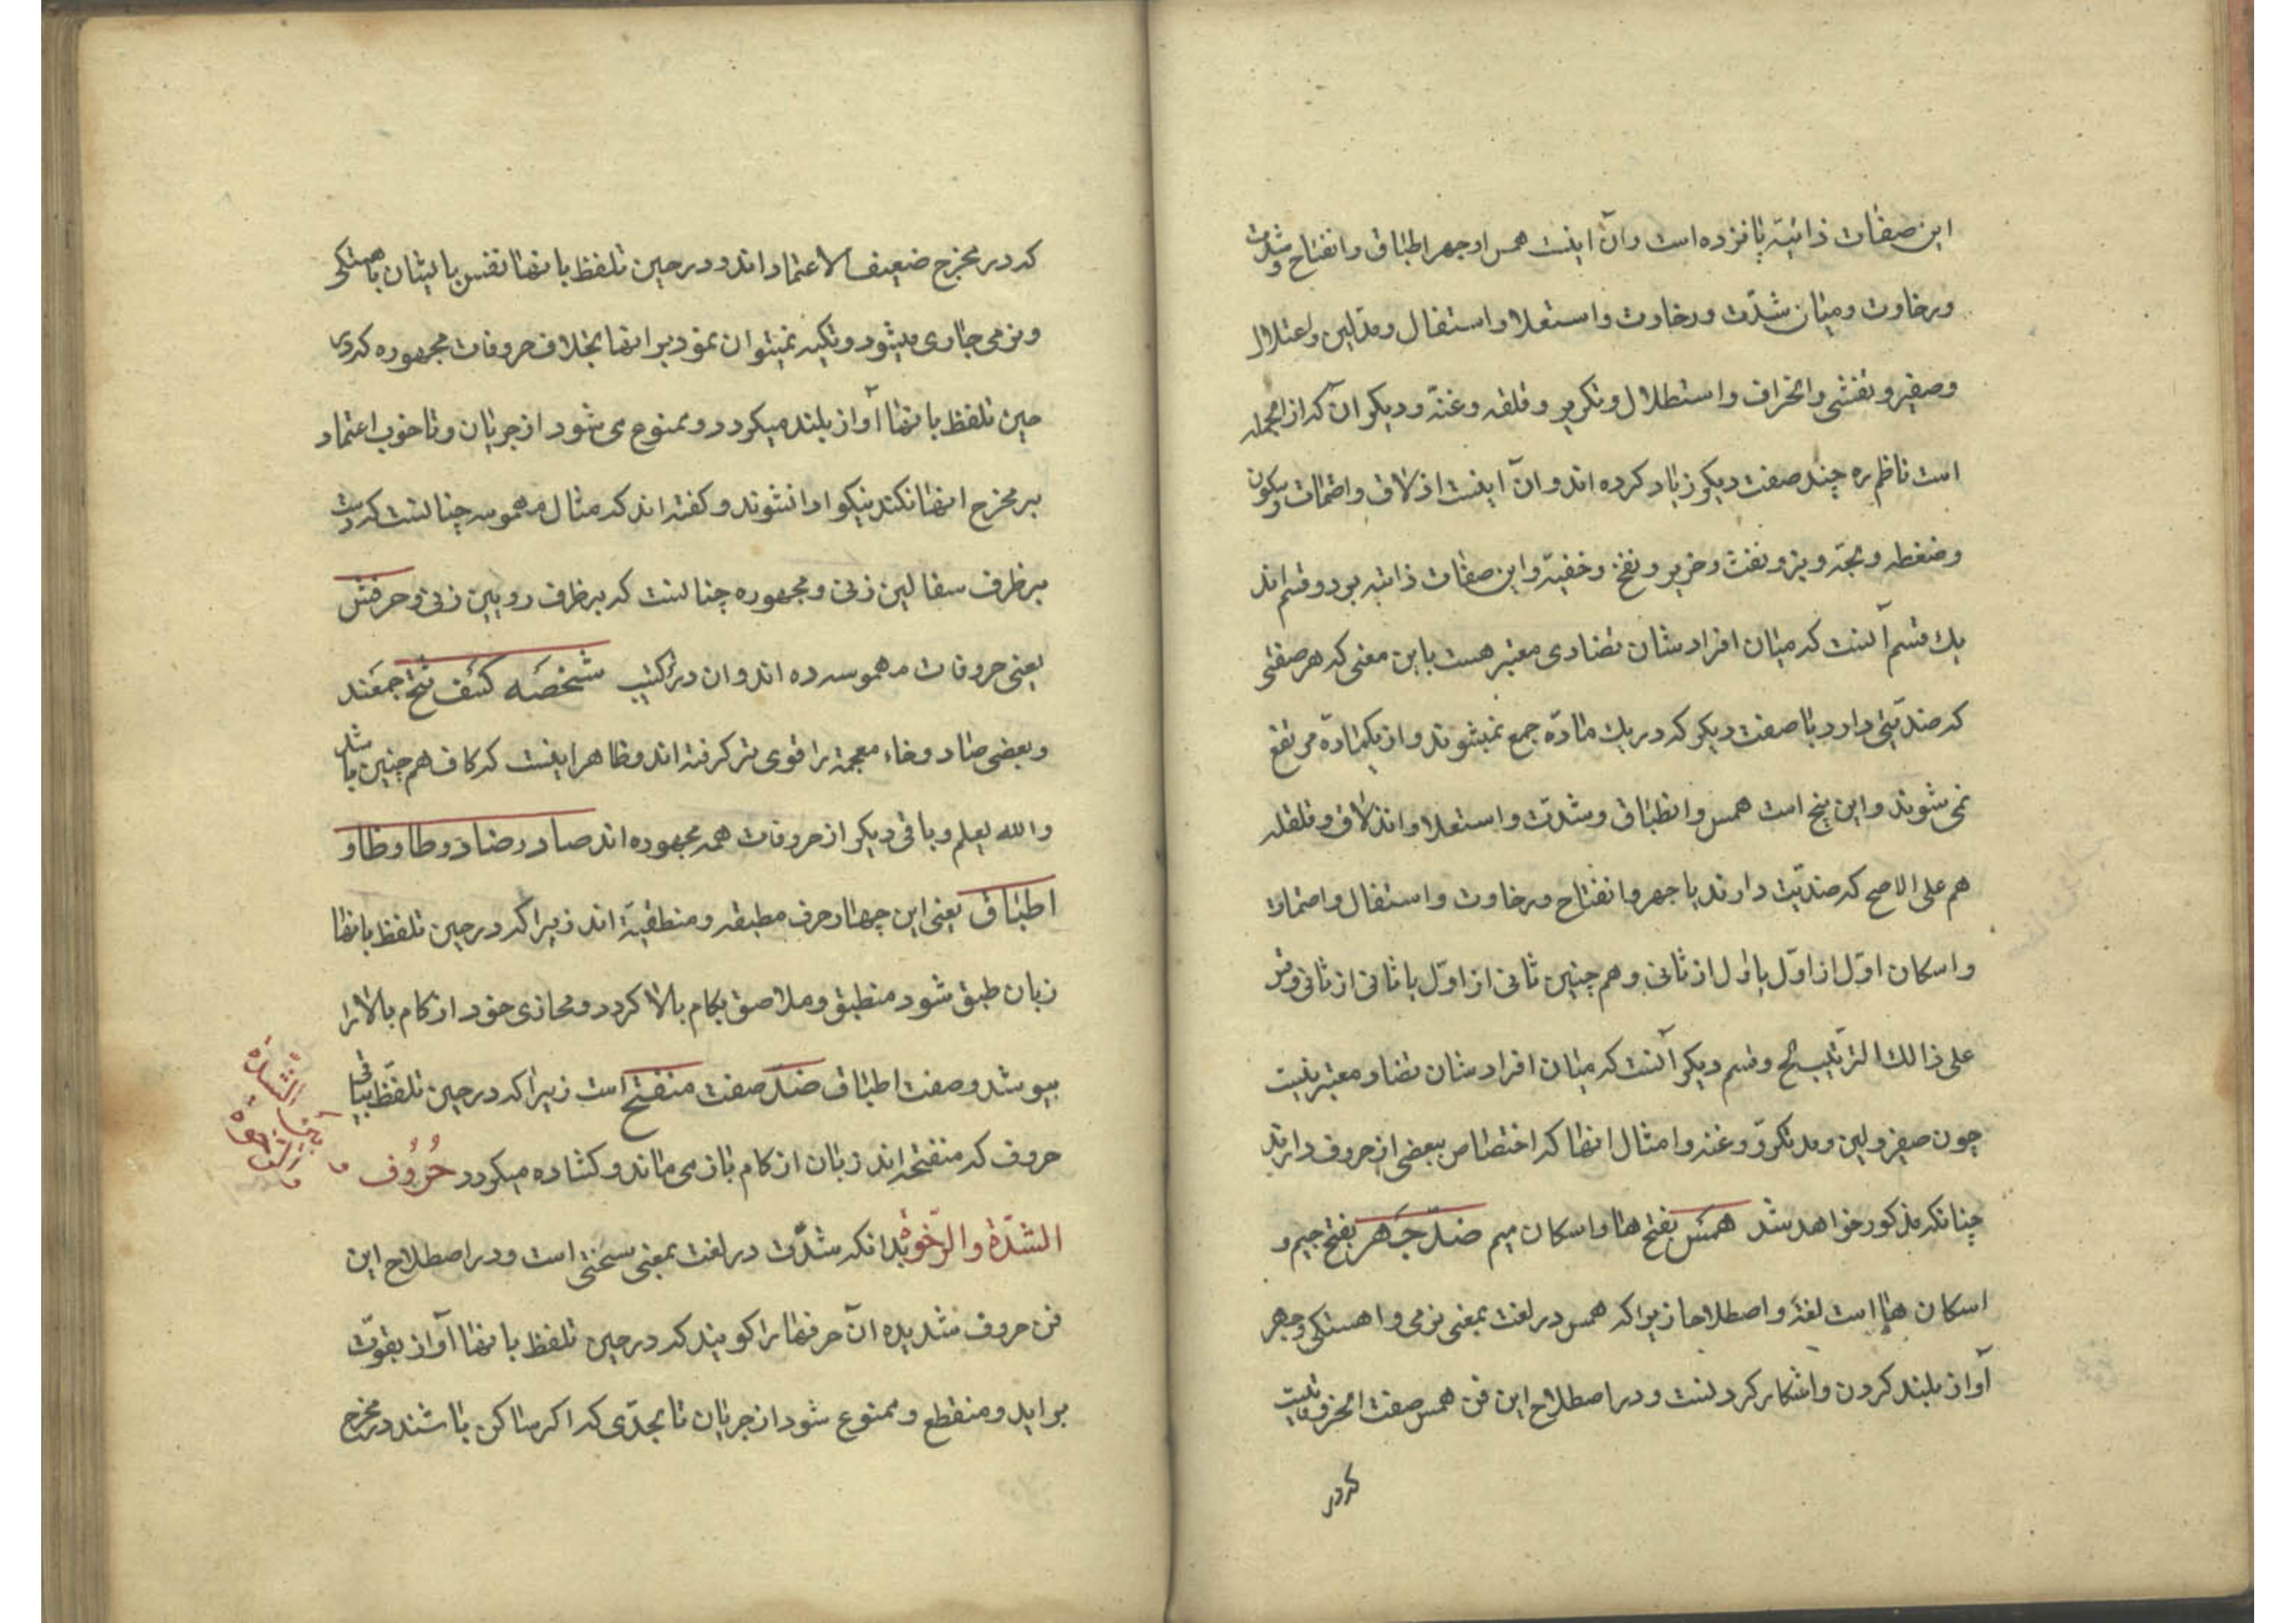 این صفات ذاتیه پانزده است وآن اینست همس وجهر اطباق وانفتاح وشدت
ورخاوت ومیان شدّت ورخاوت واستعلا واستفال ومدّلین واعتلال
وصفیر وتفشی وانحراف واستطلال وتکریر وقلقه وغنّه ودیکر آن که از انجمله
است ناظم ره چند صفت دیکر زیاد کرده اند وآن اینست اذلاق واصمات وسکون
وضغطه ونفث وخریر ونفخ وخفیّه واین صفات ذاتیه بر دو قسم اند
یك قسم آنست که میان افراد شان تضادی معتبر هست باین معنی که هر صفتی
که ضدیّتی دارد با صفت دیکر که در یك مادّه جمع نمیشوند واز یکمادّه مرتفع
نمی شوند واین پنج است همس وانطباق وشدّت واستعلا واندلاق وقلقله
هم علی الاصح که ضدیّت دارند با جهر وانفتاح ورخاوت واستفال واصمات
واسکان اوّل از اوّل باوّل از ثانی وهم چنین ثانی از اوّل با ثانی از ثانی وقس
علی ذالك الترتیب الخ وقسم دیکر آنست که میان افراد شان تضاد معتبر نیست
چون صفیر ولین ومد وتکرّر وغنه وامثال انها که اختصاص ببعضی از حروف دارند
چنانکه مذکور خواهد شد همس بفتح ها واسکان میم ضدّ جهر بفتح جیم و
اسکان ها است لغة واصطلاحا زیرا که همس در لغت بمعنی نرمی واهستکی وجهر
آواز بلند کردن واشکار کردنست ودر اصطلاح این فن همس صفت انحرفهایست
که در
که در مخرج ضعیف الاعتماد اند ودر حین تلفظ بانها نفس با ایشان باهستکی
ونرمی جاری میشود وتکیه نمیتوان نمود بر انها بخلاف حروفات مجهوره که در
حین تلفظ بانها آواز بلند میکردد وممنوع می شود از جریان وتا خوب اعتماد
بر مخرج انها نکند نیکو ادا نشوند وکفته اند که مثال مهموسه چنانست که دست
بر ظرف سفالین زنی ومجهوره چنانست که بر ظرف رویین زنی وحرفش
یعنی حروفات مهموسه ده اند وان در ترکیب شخصَه کسَف تحثّ جمعند
وبعضی صاد وخاء معجمه را قوی تر کرفته اند وظاهر اینست که کاف هم چنین باشد
والله یعلم وباقی دیکر از حروفات همه مجهوره اند صاد وضاد وطا وظا و
اطباق یعنی این چهار حرف مطبقه ومنطقیّه اند زیرا که در حین تلفظ بانها
زبان طبق شود منطبق وملاصق بکام بالا کردد ومحاذی خود از کام بالا را
بپوشد وصفت اطباق ضدّ صفت منفتح است زیرا که در حین تلفّظ بباقی
حروف که منفتحه اند زبان از کام باز می ماند وکشاده میکردد حُرُوف
الشدّة والرّخوة بدانکه شدّت در لغت بمعنی سختی است ودر اصطلاح این
فن حروف شدیده آن حرفها را کویند که در حین تلفظ بانها آواز بقوّت
براید ومنقطع وممنوع شود از جریان تا بحدّی که اکر ساکن باشند در مخرج